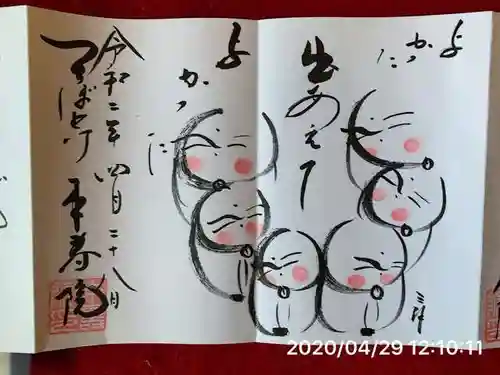 よかった
出あえて
よかった
令和二年四月二十八日
つくば
2020/04/29 12:10:11